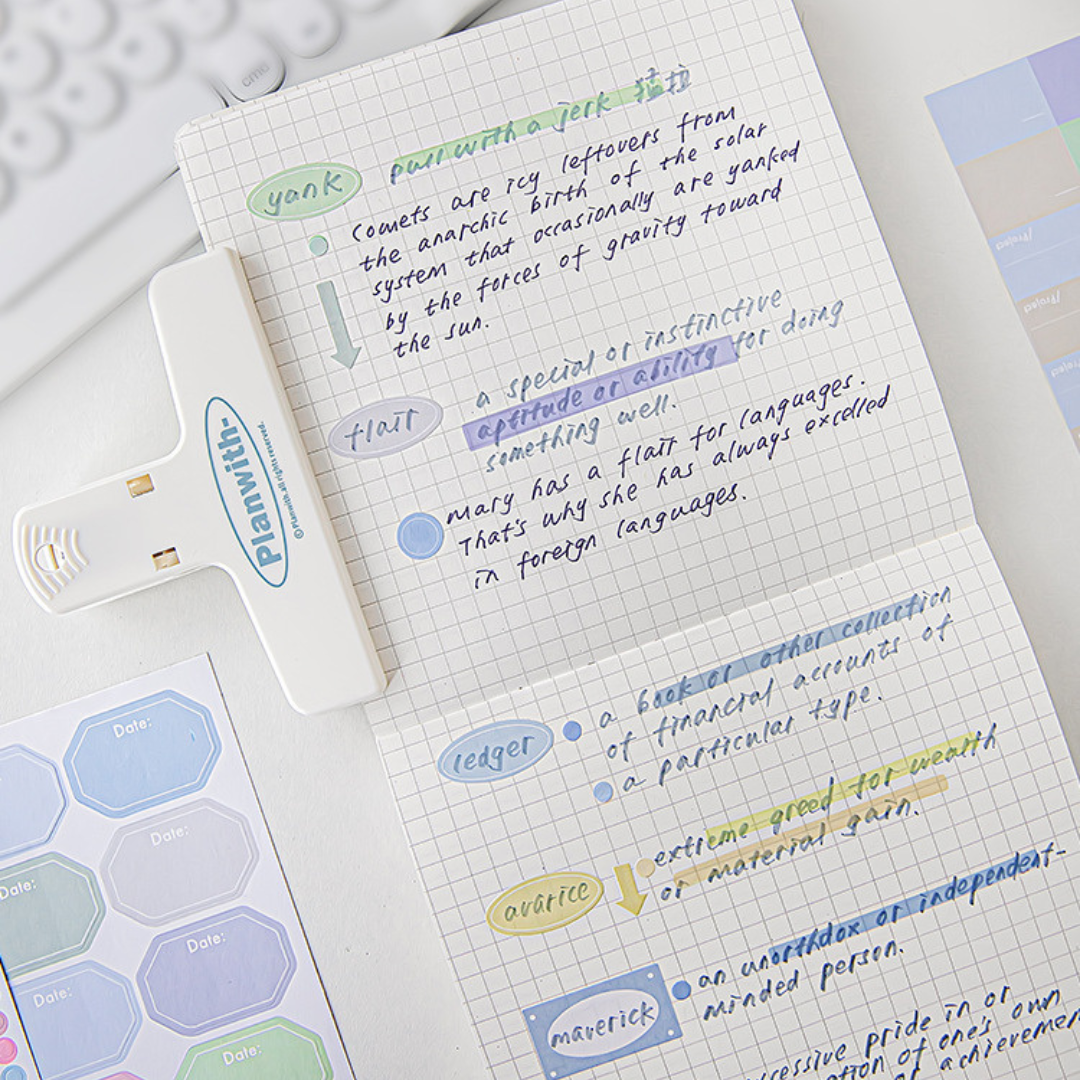 cmd
pull with a jerk 猛拉
yank
Comets are icy leftovers from
the anarchic birth of the solar
system that occasionally are yanked
by the forces of gravity toward
the sun.
a special or instinctive
flair
aptitude or ability for doing
something well.
Mary has a flair for languages.
That's why she has always excelled
in foreign languages.
Planwith-
© Planwith all rights reserved.
a book or other collection
ledger
of financial accounts of
a particular type.
extreme greed for wealth
avarice
or material gain.
an unorthdox or independent-
maverick
minded person.
pride in or
of one's own
or
Date:
Date:
Date:
Date:
Date:
Date:
/Project
/Project